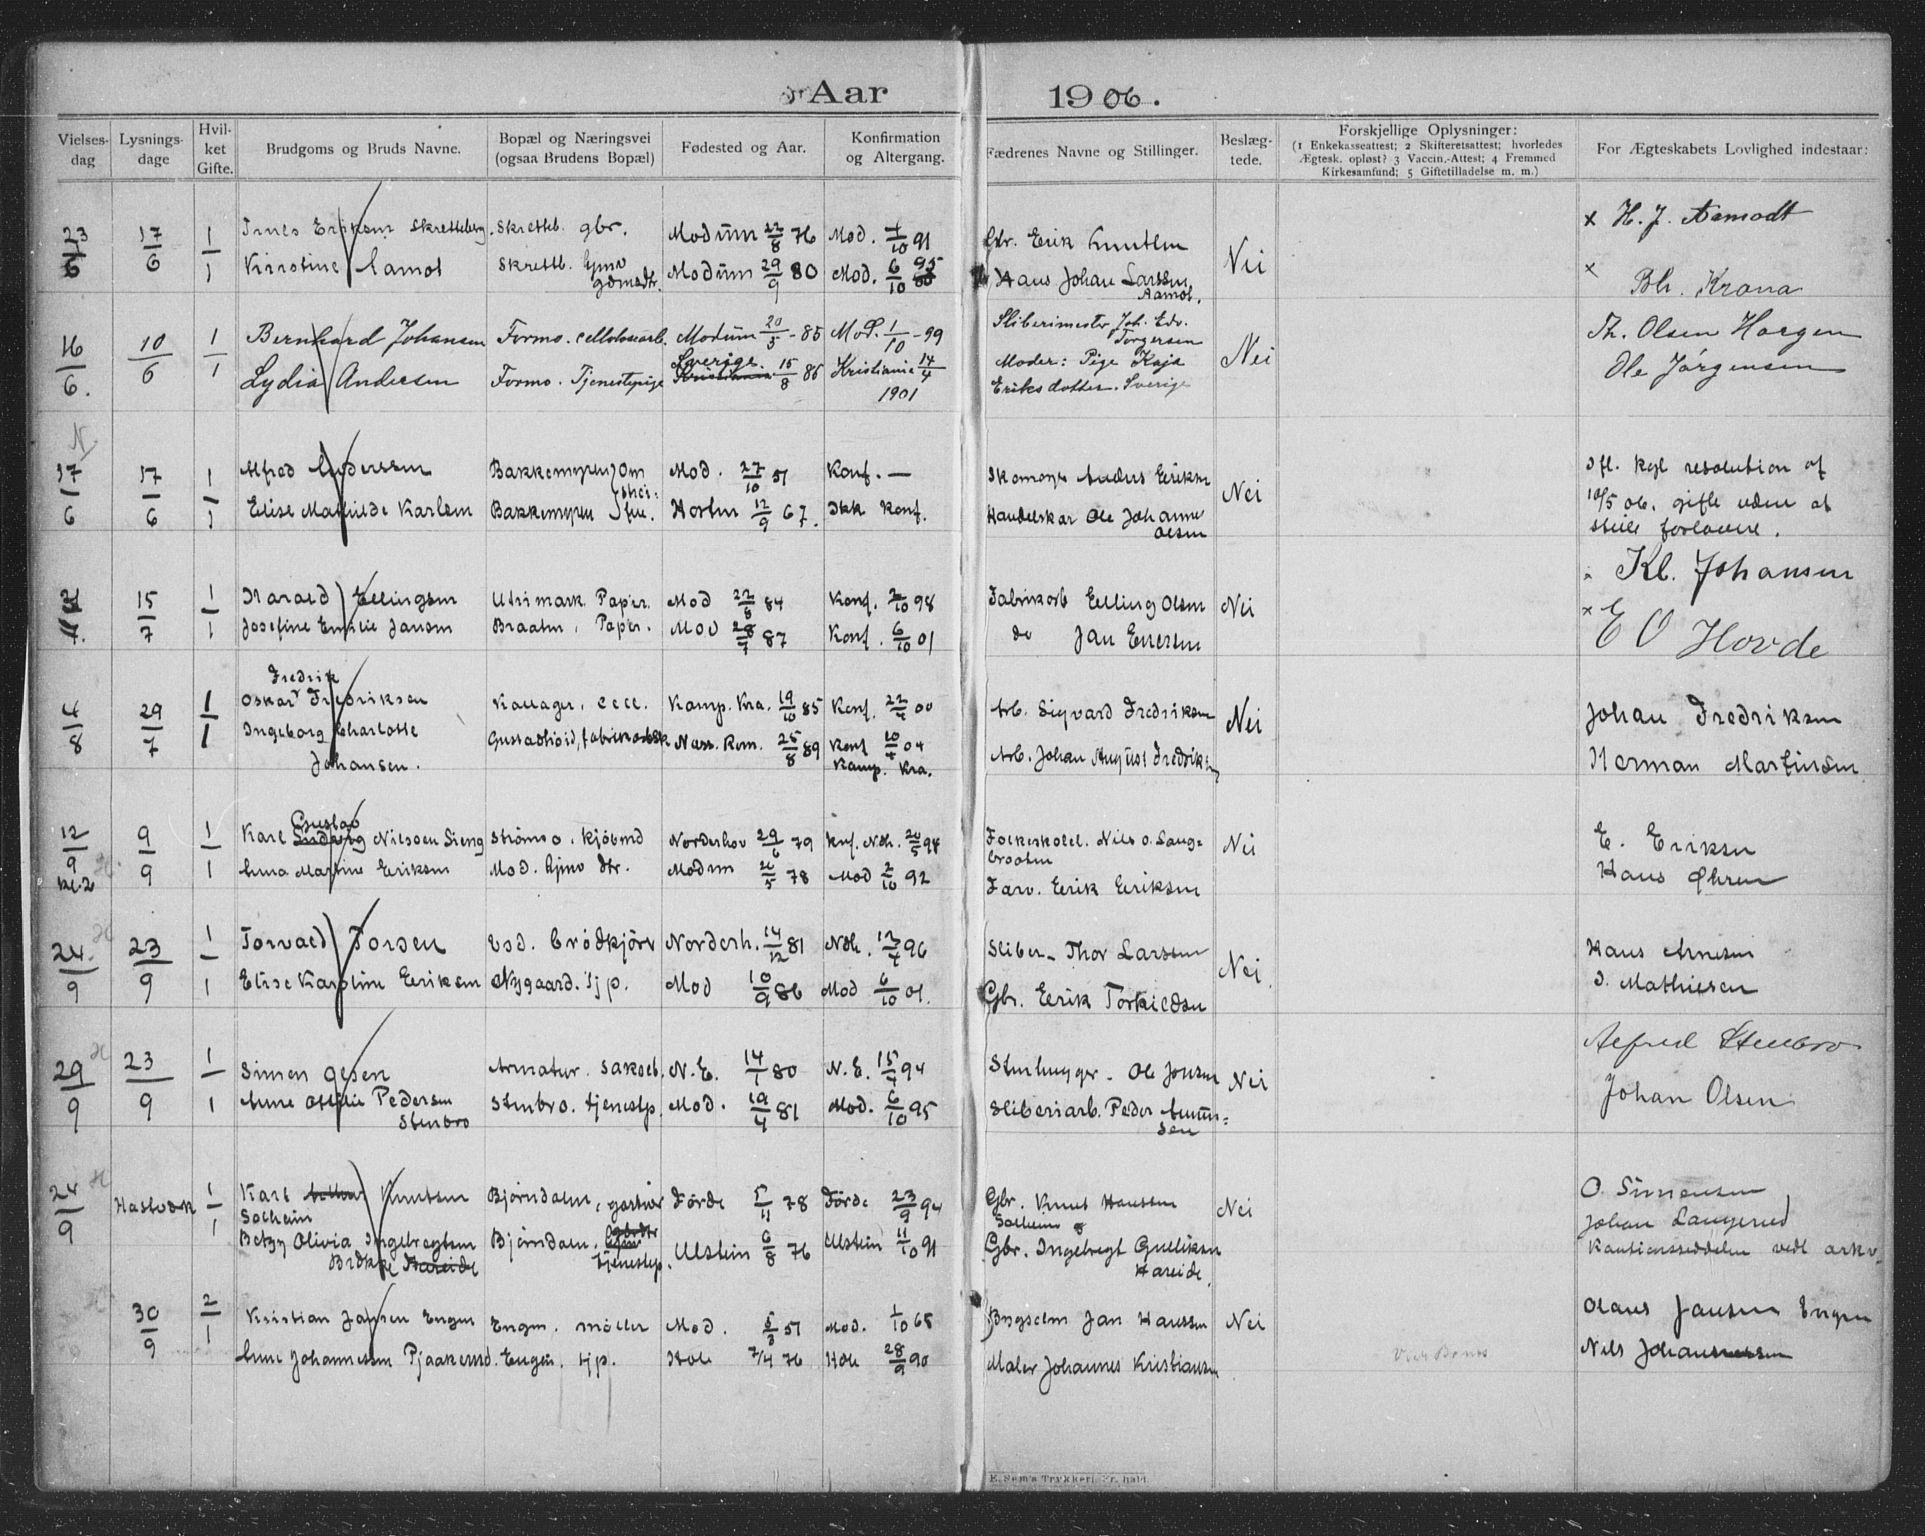 Aar 1906.
Vielses-dag
Lysnings-dage
Hvil-ket Gifte.
Brudgoms og Bruds Navne.
Bopæl og Næringsvei (ogsaa Brudens Bopæl)
Fødested og Aar.
Konfirmation og Altergang.
Fædrenes Navne og Stillinger.
Beslæg-tede.
Forskjellige Oplysninger:
(1 Enkekasseattest; 2 Skifteretsattest; hvorledes
Ægtesk. opløst? 3 Vaccin.-Attest; 4 Fremmed
Kirkesamfund; 5 Giftetilladelse m. m.)
For Ægteskabets Lovlighed indestaar:
23/6 17/6 1/1 Skretteberg. Skretteb. gbr. Modum 22/8 76 Mod. 91 Gbr. Erik Knutsen Nei × H. J. Aamodt
Kirstine Aamot Skretteb. Modum 29/9 80 Mod. 6/10 95 Hans Johan Larssen Aamot. × Bh. Krona
16/6. 10/6 1/1 Bernhard Johansen Formo. cellulosearb. Modum 20/5 - 85 Mod. 1/10 - 99 Sliberimester Joh. Edv. Torgersen Nei Th. Olsen Haagen
Lydia Andersen Formo. Tjenestepige Sverige. 15/8 86 Kristiania 14/4 1901 Moder: Pige Kaja Eriksdotter. Sverige Ole Jørgensen
17/6 17/6 1/1 Alfred Anderssen Bakkemyren Om- Mod. 27/10 51 Konf. — Skomager Anders Eriksen Nei Ifl. kgl resolution af
Elise Mathilde Karlsen Bakkemyren Horten 12/9 67. Ikk konf. Handelskar Ole Johannes Olsen 10/5 06. gifte uden at
stille forlovere.
15/7 1/1 Harald Ellingsen Utrimark. Papir. Mod 22/8 84 Konf. 2/10 98 Fabrikarb Elling Olsen Nei Kl. Johansen
Josefine Emilie Jansen Braaten, Papir. Mod 87 Konf. 6/10 01 do Jan × E O Hovde
4/8 29/7 1/1 Oskar Fredrik Fredriksen cell. Kamp. Kra. 19/10 85 Konf. 22/4 00 Arb. Sigvard Fredriksen Nei Johan Fredriksen
Ingeborg Charlotte Johansen. Gustadhøid, 25/8 89 Konf 10/4 04 Kamp. Kra. Arb. Johan August Fredriksen Herman Martinsen
12/9 kl. 2 9/9 1/1 Karl Gustav Nilssen Sieng Strømsø. kjøbmd Norderhov 29/6 79 Konf. Ndh. 20/5 94 Folkeskolel. Nils O. Langebraaten Nei E. Eriksen
Anna Martine Eriksen Mod. Gjmv dtr. Modum 26/5 78 Mod 2/10 92 Farv. Erik Eriksen Hans Øhren
24./9 23/9 1/1 Torvald Torsen brødkjører Norderh. 14/12 81 Ndh. 12/4 96 Sliber. Thor Larssen Nei. Hans Arnesen
Elise Karoline Eriksen Nygaard. Tjp. Mod 10/9 86 Mod 6/10 01. Gbr. Erik Torkildsen I. Mathiesen
29/9 23/9 1/1 Simen Olsen Armatur. N.E. 14/1 80 N.E. 15/4 94 Stenhugger. Ole Jonsen Nei Alfred Stenbro
Anne Otilie Pedersen Stenbro Stenbro. tjenestp. Mod. 19/4 81 Mod. 6/10 95 Sliberiarb. Peder Amundsen Johan Olsen
24/9 Haslevok 1/1 Karl Knutsen Solheim Bjørndalen, gartner Førde 5/11 78 Førde 23/9 94 Gbr. Knut Hanssen Solheim Nei O. Simensen
Betzy Olivia Ingebregtsen Bjørndalen. tjenestep. Ulstein 6/8 76 Ulstein 11/10 91 Gbr. Ingebregt Gulliksen Hareide. Johan Langerud
Kautionsseddelen vedl arkv.
30/9 2/1 Kristian Jansen Engen Engen. møller Mod. 5/3 51 Mod. 1/10 65 Bygselm Jan Hanssen Nei Olaus Jansen Engen
Anne Johannessen Pjaakerud. Engen. tjp. Hole 7/4 76 Hole 28/9 90 Maler Johannes Kristiansen Nils Johannessen
E. Sem's Trykkeri, Fr. hald.